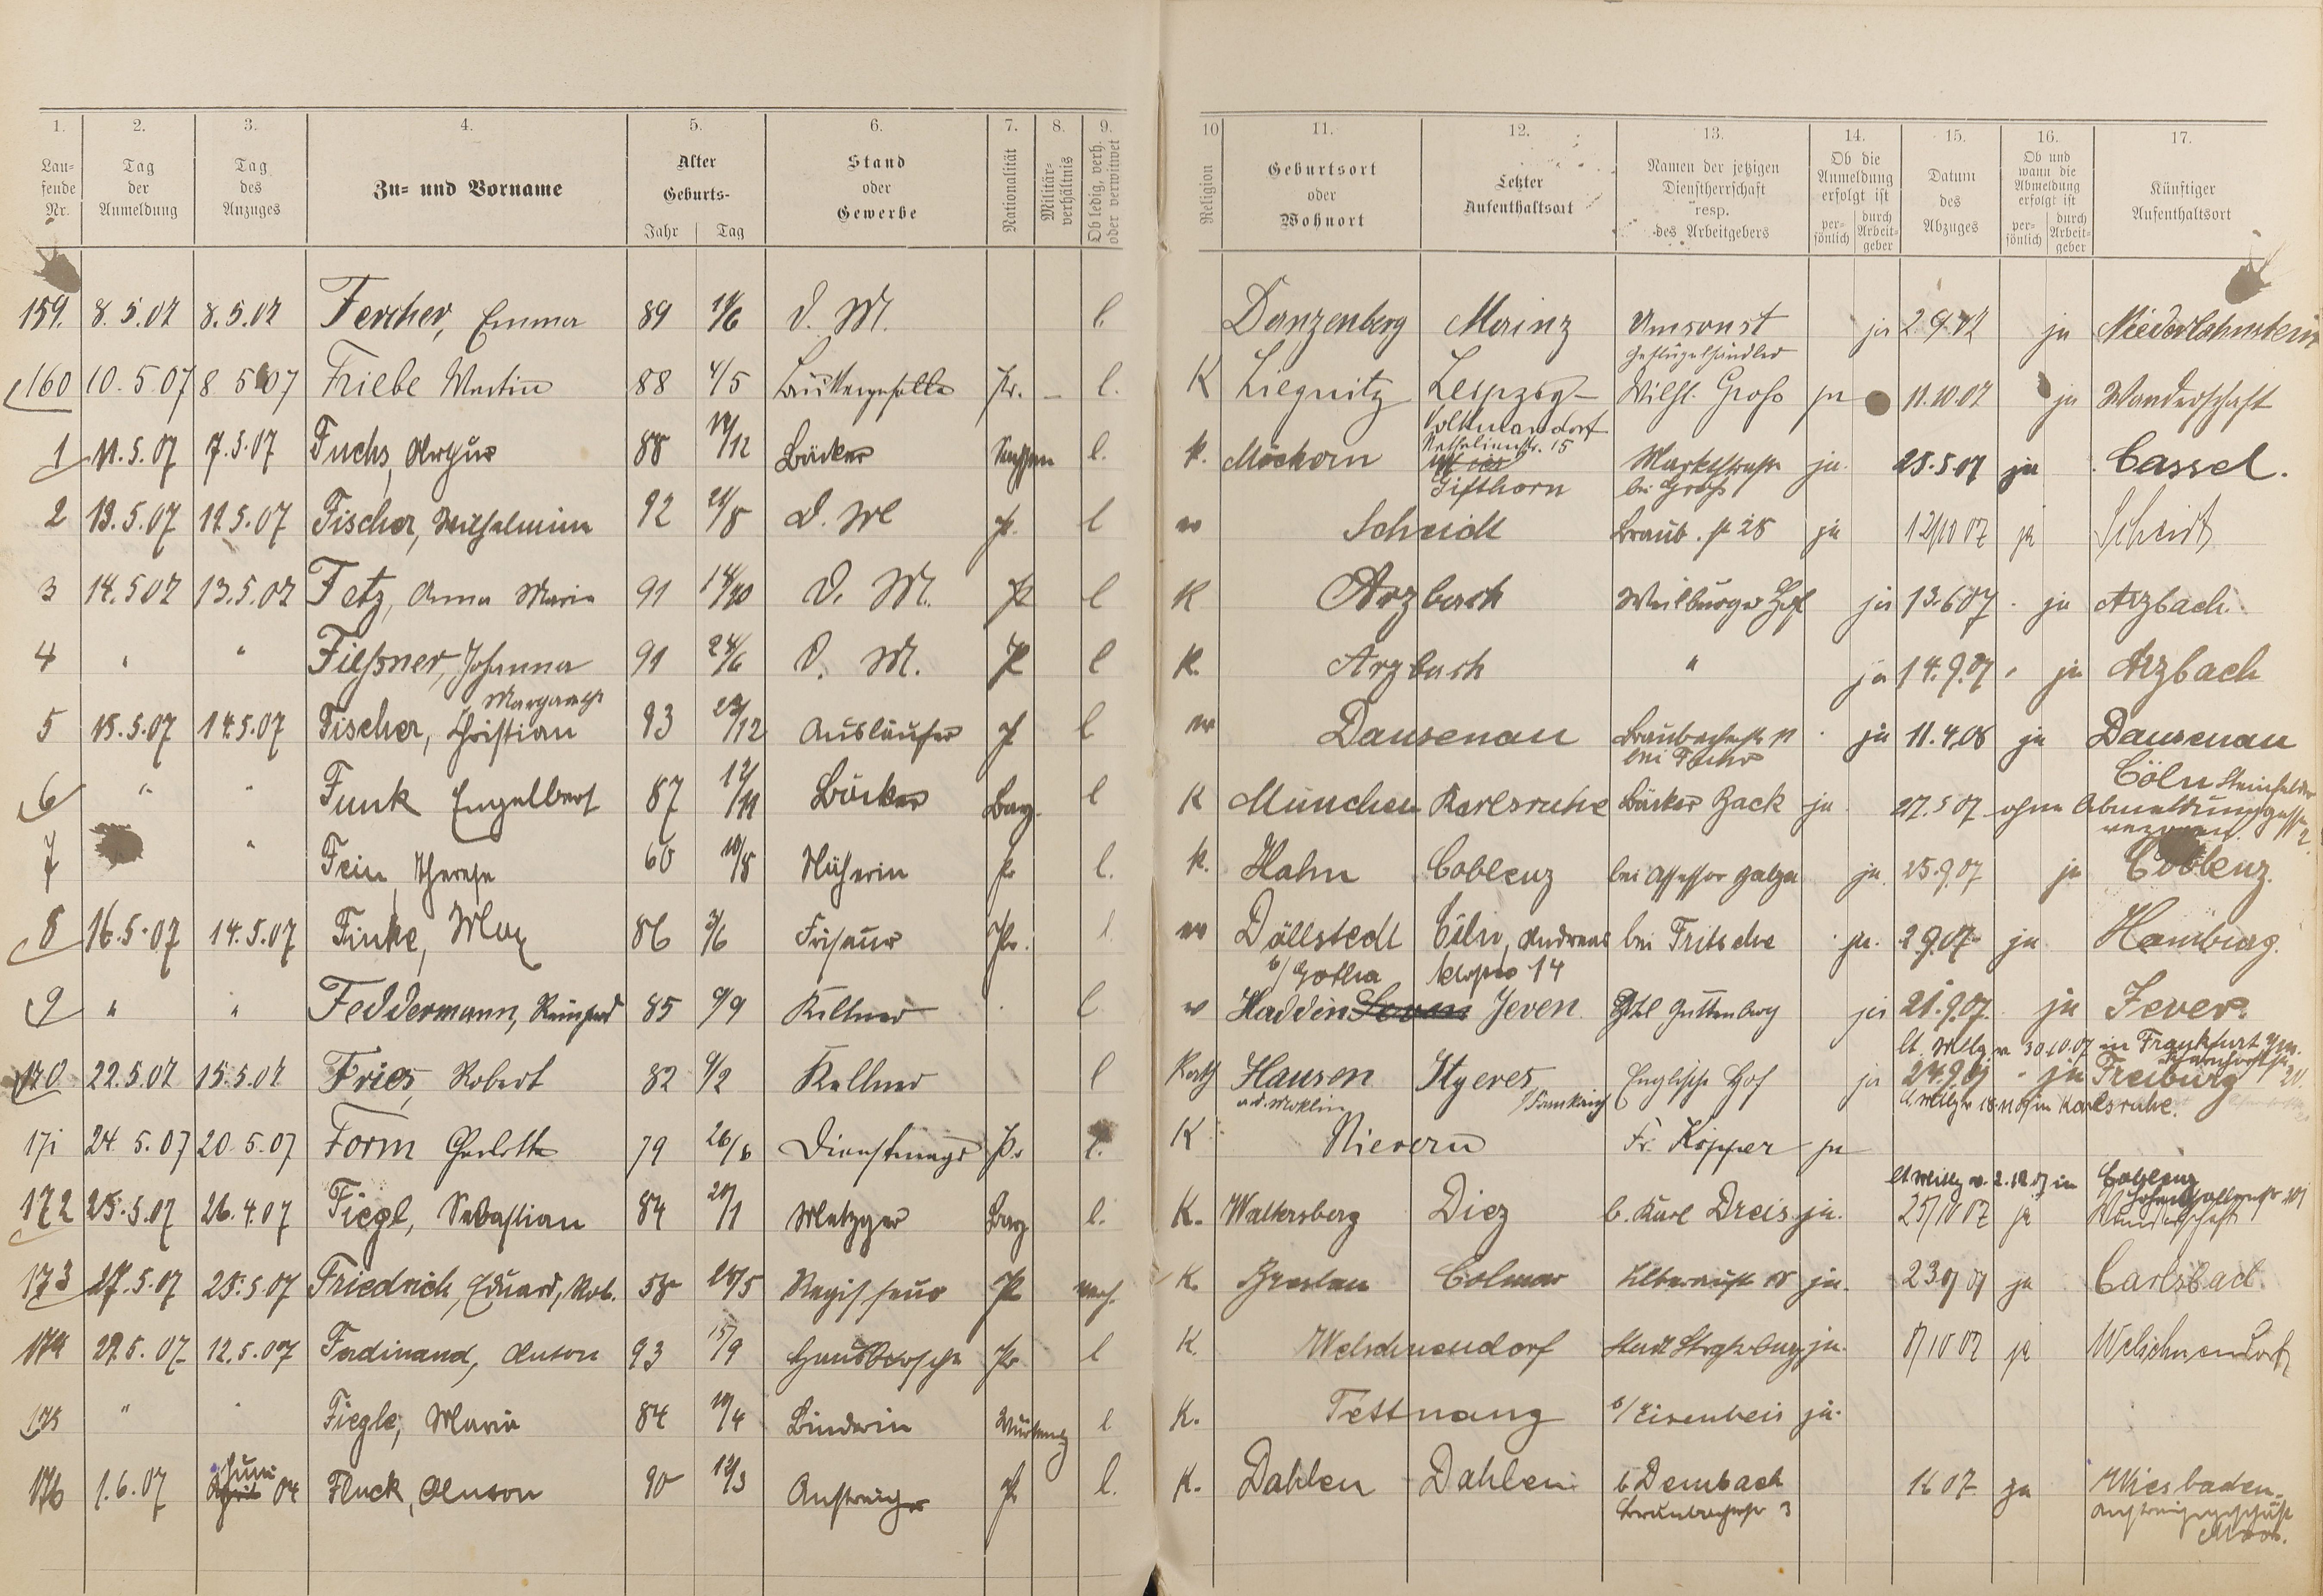 1. 2. 3. 4. 5. 6. 7. 8. 9. 10 11. 12. 13. 14. 15. 16. 17.
Lau-
fende
Nr.
Tag
der
Anmeldung
Tag
des
Anzuges
Zu- und Vorname
Alter
Geburts-
Jahr Tag
Stand
oder
Gewerbe
Nationalität
Militär-
verhältnis
Ob ledig, verh.
oder verwitwet
Religion
Geburtsort
oder
Wohnort
Letzter
Aufenthaltsort
Namen der jetzigen
Dienstherrschaft
resp.
des Arbeitgebers
Ob die
Anmeldung
erfolgt ist
per-
sönlich
durch
Arbeit-
geber
Datum
des
Abzuges
Ob und
wann die
Abmeldung
erfolgt ist
per-
sönlich
durch
Arbeit-
geber
Künftiger
Aufenthaltsort
159. 8.5.07 8.5.07 Fercher, Emma 89 D. M. l. Mainz Umsonst ja ja Niederlahnstein
Geflügelhändler
160 10.5.07 8 5 07 Friebe Martin 88 4/5 Pr. l. K Liegnitz Leipzig- Wilh. Groß ja 11.10.07 ja Wanderschaft
Volkmarsdorf
Nathalienstr. 15
1 11.5.07 7.5.07 Fuchs, Arthur 88 Bäcker Sachsen l. Möckern Marktstraße ja. 25.5.07 ja Cassel.
Gifthorn bei Groß
2 13.5.07 11.5.07 Fischer, Wilhelmine 92 21/8 D. M l Scheidt Braub. st 28 ja 12/10 07 ja Scheidt
3 14.5.07 13.5.07 Fetz, Anna Maria 91 14/10 D. M. Pr l K Arzbach Weilburger Hof ja 13.6.07 ja Arzbach
4 " " Fießner, Johanna 91 24/6 D. M. Pr l K. Arzbach " ja 14.9.07 ja Arzbach
Margareth
5 15.5.07 14.5.07 Fischer, Christian 93 Ausläufer l Dausenau Braubacherstr 11 ja 11.4.08 ja Dausenau
6 " " Funk Engelbert 87 12/11 Bäcker Bay. l K München Karlsruhe Bäcker Zack ja 27.5.07 ohne Abmeldung
Cöln
7 " Fein, Therese 60 10/8 Näherin Pr l. K. Hahn Coblenz bei Assessor ja. 25.9.07 ja Coblenz.
8 16.5.07 14.5.07 Finke, Max 86 3/6 Friseur Pr. l Döllstedt Cöln, Andreas bei Fritsche ja. 2.9.07 ja Hamburg.
b/ Gotha 14
9 " " Feddermann, 85 9/9 Kellner l Haddin Jever Hotel Guttenberg ja 21.9.07. ja Jever.
170 22.5.07 15.5.07 Fries, Robert 82 9/2 Kellner l Kath Hausen Englischer Hof ja 24.9.07 ja Freiburg
in Frankfurt
in Karlsruhe.
171 24.5.07 20.5.07 Form Charlotte 79 26/6 Dienstmagd Pr l. K Nievern Fr. Köpper ja
172 25.5.07 26.4.07 Fiegl, Sebastian 84 20/1 Metzger Bay l. K. Waltersberg Diez b. Karl Dreis ja. 25/10 07 ja Wanderschaft
Coblenz
173 27.5.07 25.5.07 Friedrich, Eduard, Rob. 58 Regisseur Pr verh. K. Breslau Colmar ja. ja Carlsbad.
174 27.5.07 12.5.07 Ferdinand, Anton 93 15/9 Hausbursche Pr l K. Welschneudorf Stadt Straßburg ja. ja Welschneudorf
175 " " Fiegle, Maria 84 Binderin l K. Tettnang b/ Eisenbeis ja.
176 1.6.07 Juni 07 Fluck, Anton 90 12/3 Anstreicher Pr l. K. Dahlen Dahlen b Dembach 1 6 07 ja Wiesbaden.
3